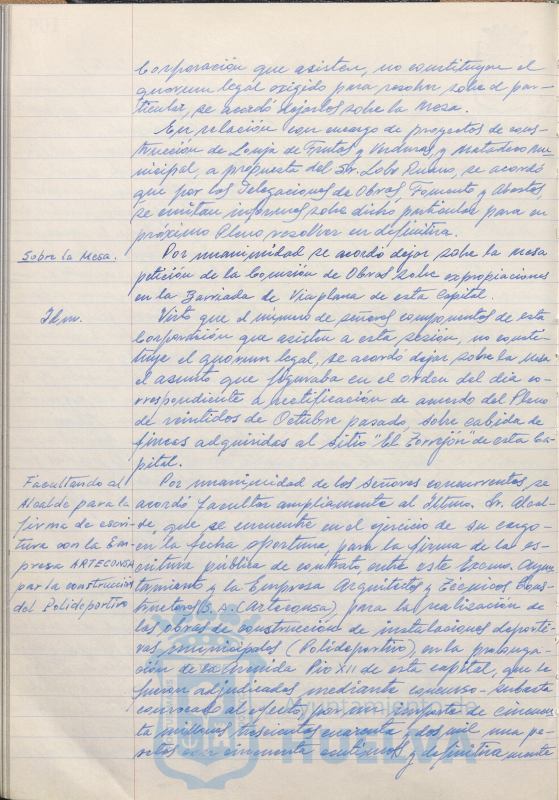 Corporación que asisten, no constituyen el
quorum legal exigido para resolver sobre el par-
ticular, se acordó dejarlos sobre la Mesa.
En relación con encargo de proyectos de cons-
trucción de Lonja de Frutas y Verduras, y Matadero Mu-
nicipal, a propuesta del Sr. Lobo Ruano, se acordó
que por las Delegaciones de Obras, Fomento y Abastos,
se emitan informes sobre dicho particular para en
próximo Pleno resolver en definitiva.
Sobre la Mesa.
Por unanimidad se acordó dejar sobre la mesa
petición de la Comisión de Obras sobre expropiaciones
en la Barriada de Viaplana de esta Capital.
Idem.
Visto que el número de señores componentes de esta
Corporación que asisten a esta sesión, no consti-
tuye el quorum legal, se acordó dejar sobre la mesa
el asunto que figuraba en el orden del día co-
rrespondiente a rectificación de acuerdo del Pleno
de veintidos de Octubre pasado, sobre cabida de
fincas adquiridas al sitio "El Torrejón" de esta Ca-
pital.
Facultando al
Alcalde para la
firma de escri-
tura con la Em-
presa ARTECONSA
por la construcción
del Polideportivo
Por unanimidad de los Señores concurrentes, se
acordó facultar ampliamente al Iltmo. Sr. Alcal-
de, que se encuentre en el ejercicio de su cargo
en la fecha oportuna, para la firma de la es-
critura pública de contrato, entre este Excmo. Ayun-
tamiento y la Empresa Arquitectos y Técnicos Cons-
tructores S.A. (Arteconsa), para la realización de
las obras de construcción de instalaciones deporti-
vas municipales (Polideportivo), en la prolonga-
ción de la Avenida Pio XII de esta capital, que le
fueron adjudicadas mediante concurso-subasta
convocado al efecto, por un importe de cincuen-
ta millones trescientas cuarenta y dos mil una pe-
setas con cincuenta centimos y definitivamente
Ayuntamiento de
HUELVA